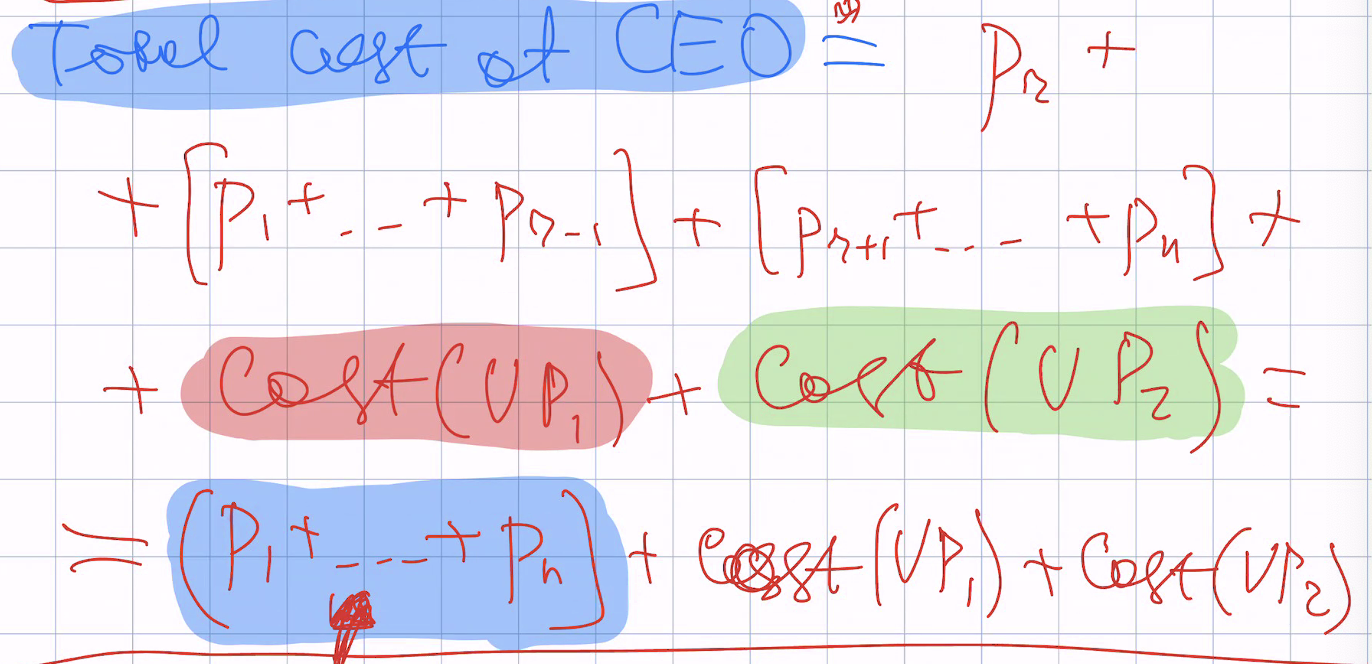 Total cost at CEO = p_r +
+ [p_1 + ... + p_{r-1}] + [p_{r+1} + ... + p_n] +
+ Cost(VP_1) + Cost(VP_2) =
= (p_1 + ... + p_n) + Cost(VP_1) + Cost(VP_2)